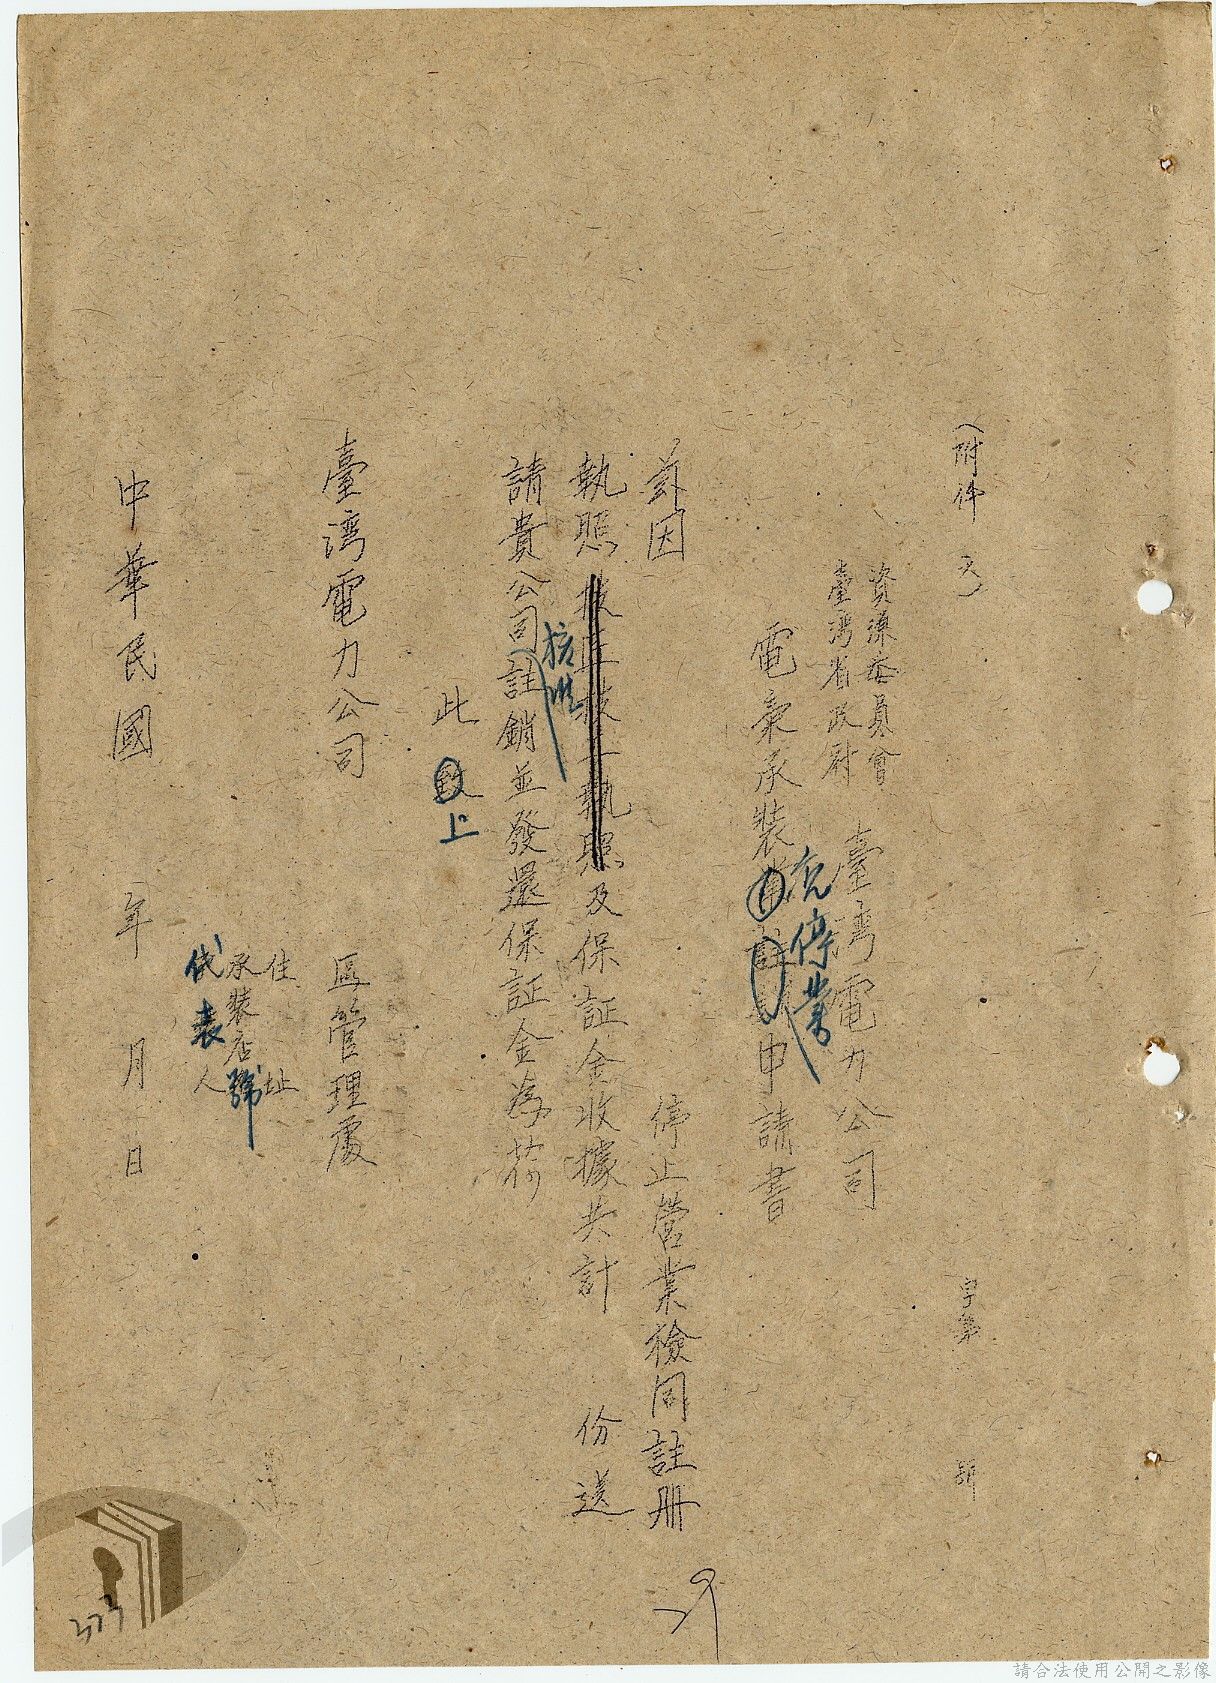 (附件
字第 號
資源委員會
臺灣省政府 臺灣電力公司
電氣承裝業註銷申請書
商停業
茲因 停止營業檢同註冊
執照及保証金收據共計 份送
請貴公司註銷並發還保証金為荷
核准
此致
上
臺灣電力公司 區管理處
住址
承裝店號
代表人
中華民國 年 月 日
請合法使用公開之影像